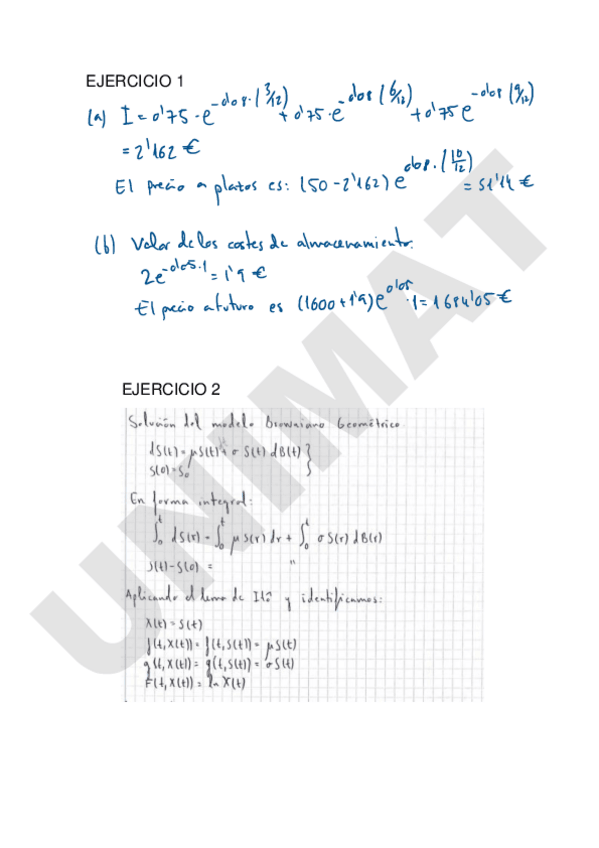 EJERCICIO 1
(a) I = 0'75 · e^-0'08·(3/12) + 0'75 · e^-0'08 (6/12) + 0'75 e^-0'08 (9/12)
= 2'162 €
El precio a plazos es: (50 - 2'162) e^0'08·(10/12) = 51'14 €
(b) Valor de los costes de almacenamiento:
2e^-0'05·1 = 1'9 €
El precio a futuro es (1600 + 1'9) e^0'05 · 1 = 1684'05 €
EJERCICIO 2
Solución del modelo Browniano Geométrico.
dS(t) = μS(t) + σ S(t) dB(t) }
S(0) = S₀ }
En forma integral:
∫₀ᵗ dS(r) = ∫₀ᵗ μ S(r) dr + ∫₀ᵗ σ S(r) dB(r)
S(t) - S(0) = "
Aplicando el lema de Itô y identificamos:
X(t) = S(t)
f(t, X(t)) = f(t, S(t)) = μS(t)
g(t, X(t)) = g(t, S(t)) = σS(t)
F(t, X(t)) = ln X(t)
UNIMAT